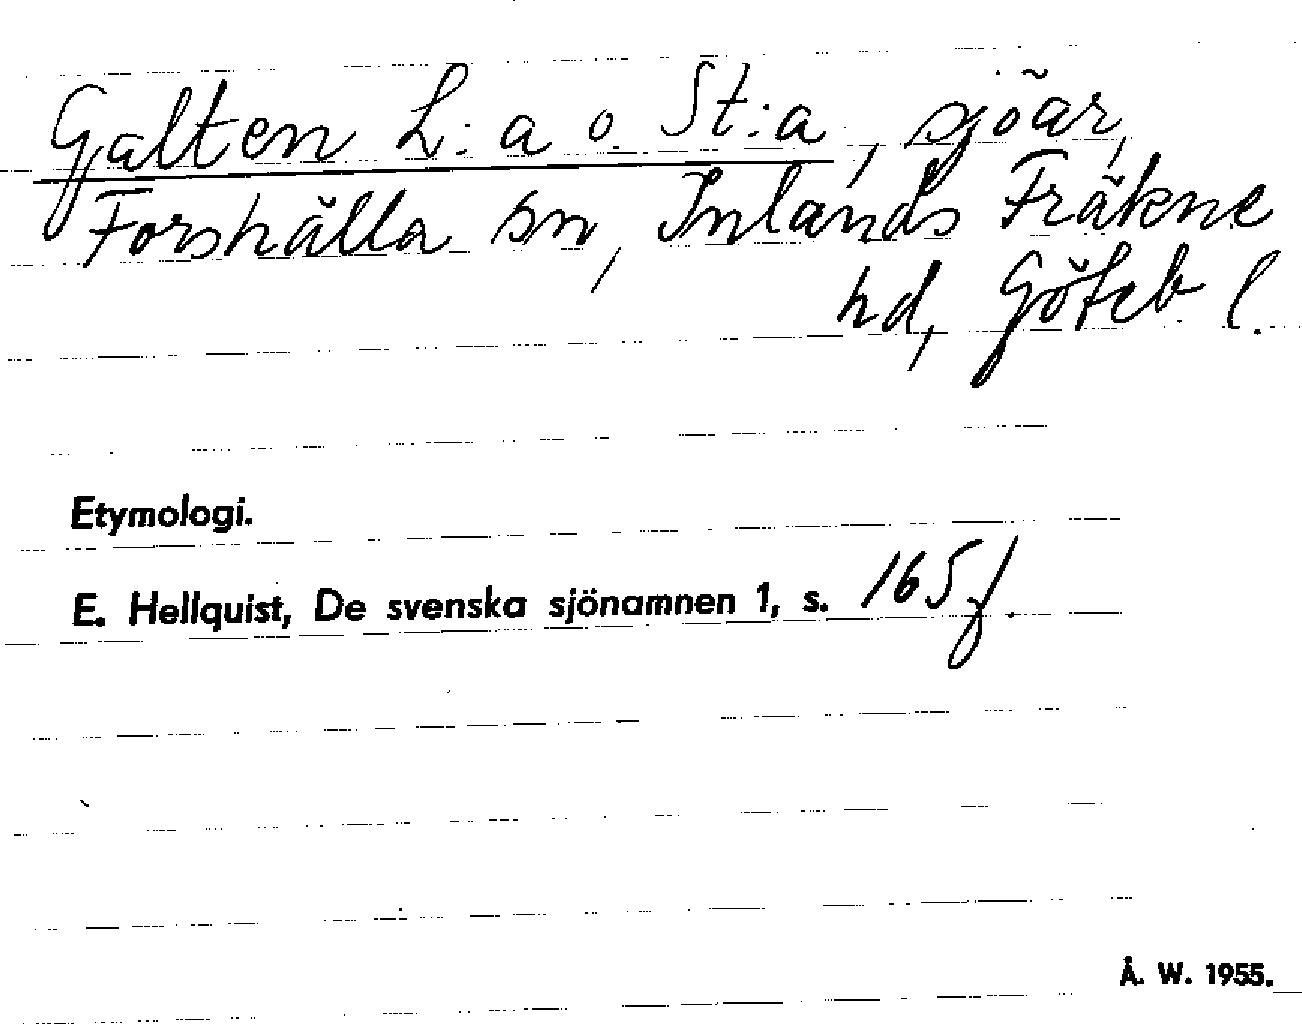 Galten L:a o. St:a, sjöar,
Forshälla sn, Inlands Fräkne
hd, Göteb. l.
Etymologi.
E. Hellquist, De svenska sjönamnen 1, s. 165 f.
Å. W. 1955.